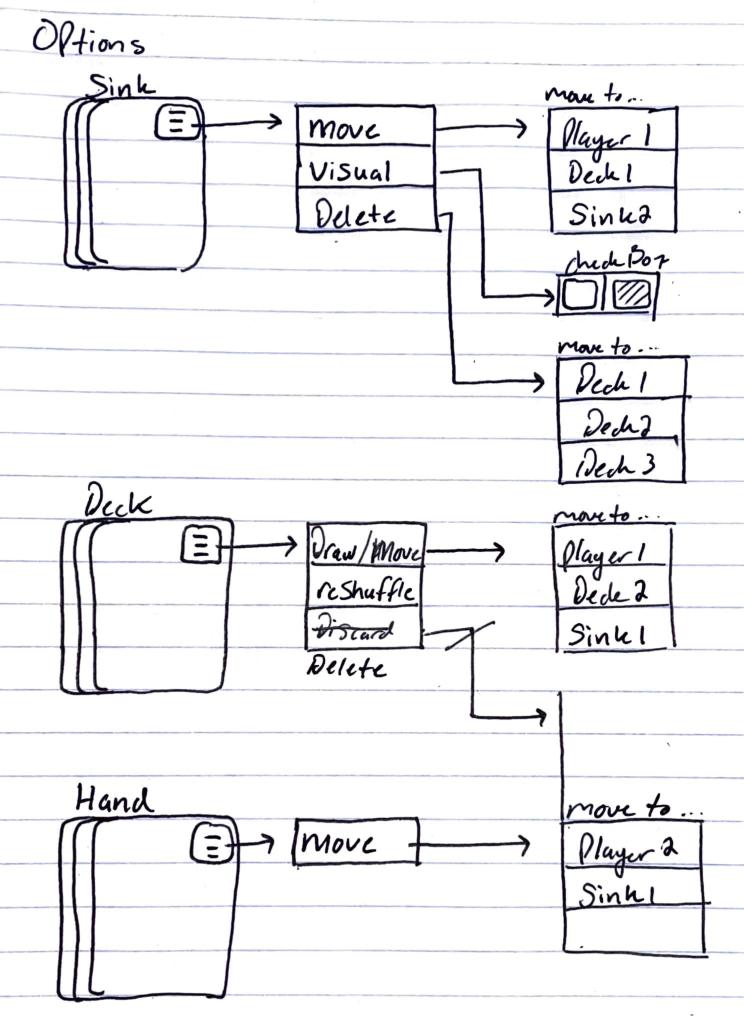 Options
Sink
move
Visual
Delete
move to...
Player 1
Deck 1
Sink 2
check Box
move to...
Deck 1
Deck 2
Deck 3
Deck
Draw/Move
reshuffle
Discard
Delete
move to...
Player 1
Deck 2
Sink 1
Hand
move
move to...
Player 2
Sink 1